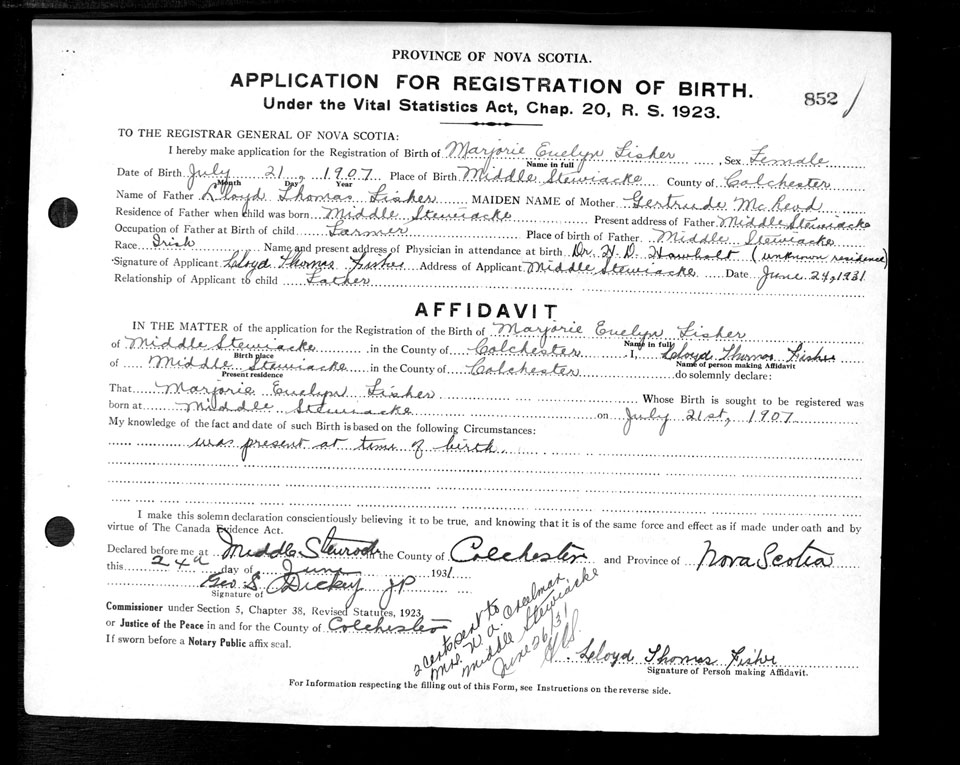 PROVINCE OF NOVA SCOTIA.
APPLICATION FOR REGISTRATION OF BIRTH.
852
Under the Vital Statistics Act, Chap. 20, R. S. 1923.
TO THE REGISTRAR GENERAL OF NOVA SCOTIA:
I hereby make application for the Registration of Birth of Marjorie Evelyn Fisher, Sex Female
Name in full
Date of Birth July 21, 1907 Place of Birth Middle Stewiacke County of Colchester
Month Day Year
Name of Father Lloyd Thomas Fisher MAIDEN NAME of Mother Gertrude
Residence of Father when child was born Middle Stewiacke Present address of Father Middle Stewiacke
Occupation of Father at Birth of child Farmer Place of birth of Father Middle Stewiacke
Race Irish Name and present address of Physician in attendance at birth Dr. H. D. (unknown residence)
Signature of Applicant Lloyd Thomas Fisher Address of Applicant Middle Stewiacke Date June 24, 1931
Relationship of Applicant to child Father
AFFIDAVIT
IN THE MATTER of the application for the Registration of the Birth of Marjorie Evelyn Fisher
Name in full
of Middle Stewiacke in the County of Colchester I, Lloyd Thomas Fisher
Birth place Name of person making Affidavit
of Middle Stewiacke in the County of Colchester do solemnly declare:
Present residence
That Marjorie Evelyn Fisher Whose Birth is sought to be registered was
born at Middle Stewiacke on July 21st, 1907
My knowledge of the fact and date of such Birth is based on the following Circumstances:
was present at time of birth.
I make this solemn declaration conscientiously believing it to be true, and knowing that it is of the same force and effect as if made under oath and by
virtue of The Canada Evidence Act.
Declared before me at Middle in the County of Colchester and Province of Nova Scotia
this day of June 1931
Geo. S. Dickey JP
Signature of
Commissioner under Section 5, Chapter 38, Revised Statutes, 1923,
or Justice of the Peace in and for the County of Colchester
If sworn before a Notary Public affix seal.
2 certs sent to
Mrs. W. A. Creelman
Middle Stewiacke
June 26/31
Lloyd Thomas Fisher
Signature of Person making Affidavit.
For Information respecting the filling out of this Form, see Instructions on the reverse side.